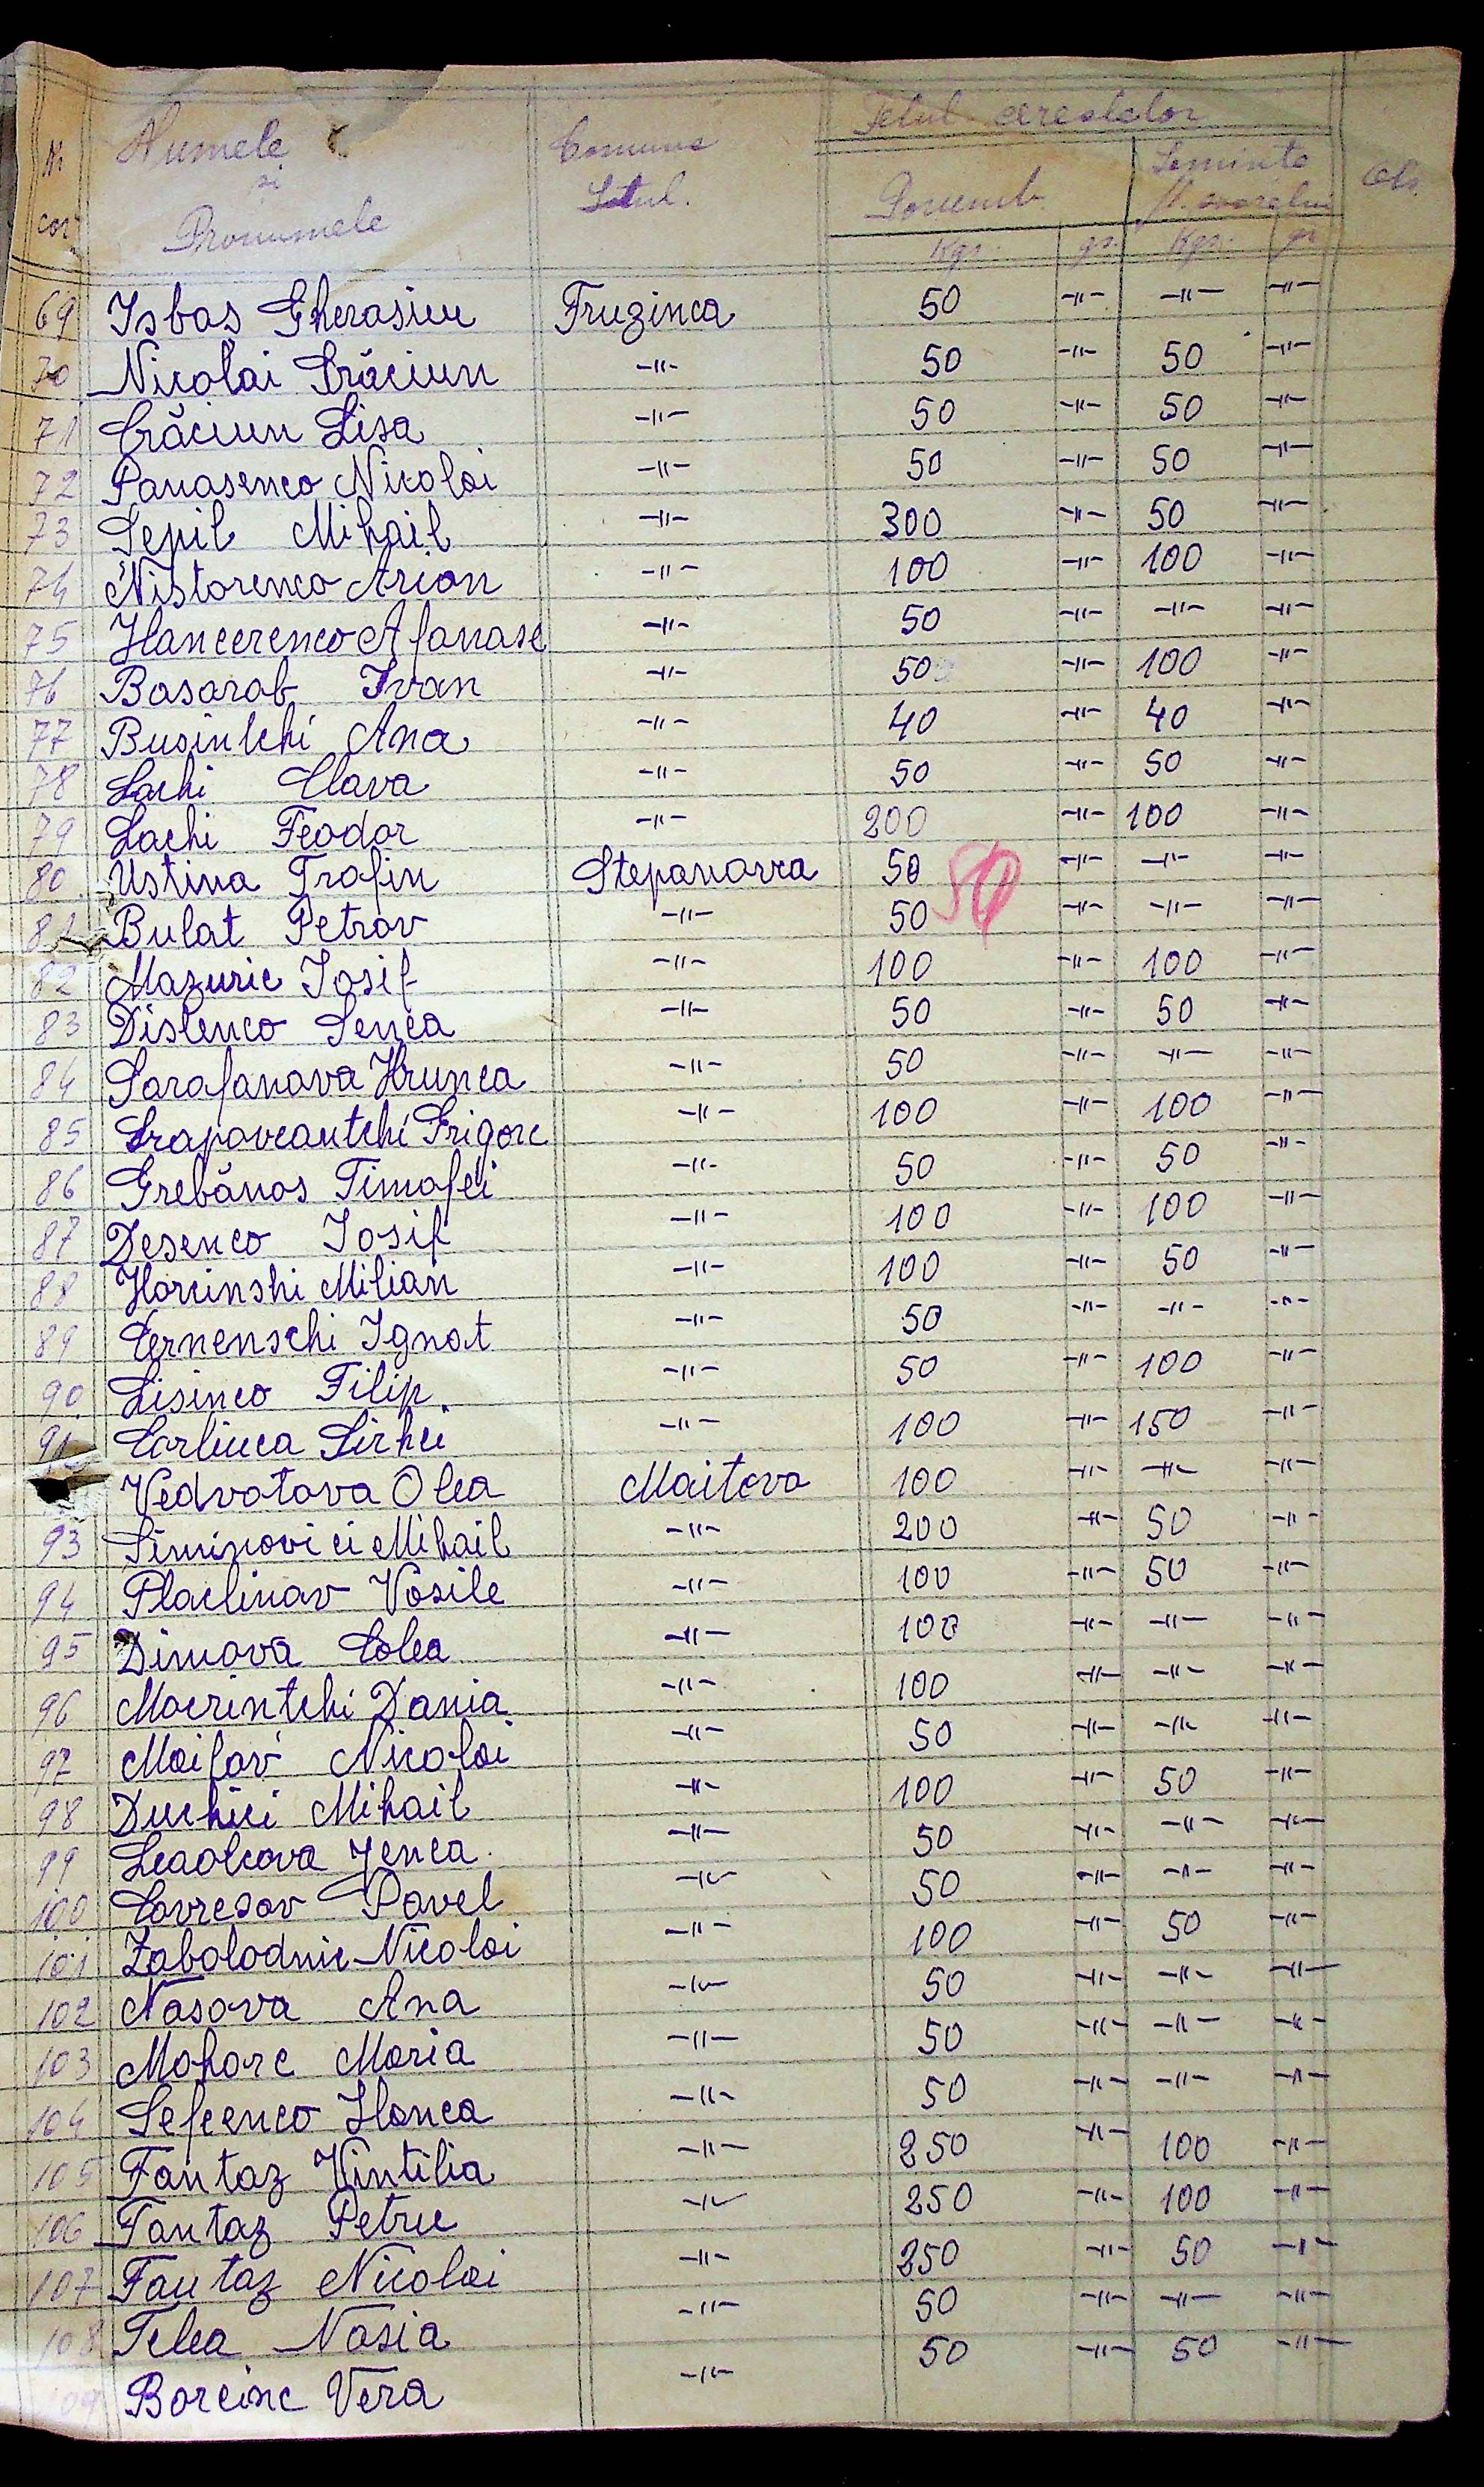 Nr cor Numele și Pronumele Comuna Satul. Felul cerealelor Porumb Seminte fl. soarelui Obs.
Kgr. gr. Kgr. gr
69 Isbaș Gherasim Fruzinca 50 -"- -"- -"-
70 Nicolai Crăciun -"- 50 -"- 50 -"-
71 Crăciun Lisa -"- 50 -"- 50 -"-
72 Panasenco Nicolai -"- 50 -"- 50 -"-
73 Sepil Mihail -"- 300 -"- 50 -"-
74 Nistorenco Arion -"- 100 -"- 100 -"-
75 Hancerenco Afanase -"- 50 -"- -"- -"-
76 Basarab Ivan -"- 50 -"- 100 -"-
77 Businschi Ana -"- 40 -"- 40 -"-
78 Lachi Clava -"- 50 -"- 50 -"-
79 Lachi Feodor -"- 200 -"- 100 -"-
80 Ustina Trofin Stepanovca 50 -"- -"- -"-
81 Bulat Petrov -"- 50 50 -"- -"- -"-
82 Mazuric Iosif -"- 100 -"- 100 -"-
83 Dislenco Senca -"- 50 -"- 50 -"-
84 Sarafanova Hrunca -"- 50 -"- -"- -"-
85 Grigore -"- 100 -"- 100 -"-
86 Grebănos Timofei -"- 50 -"- 50 -"-
87 Desenco Iosif -"- 100 -"- 100 -"-
88 Horcinshi Milian -"- 100 -"- 50 -"-
89 Cernenschi Ignat -"- 50 -"- -"- -"-
90 Lisinco Filip -"- 50 -"- 100 -"-
91 Carliuca Sirhei -"- 100 -"- 150 -"-
Vedvotova Olea Maitova 100 -"- -"- -"-
93 Siminovici Mihail -"- 200 -"- 50 -"-
94 Placlinav Vasile -"- 100 -"- 50 -"-
95 Dimova Colea -"- 100 -"- -"- -"-
96 Macrintchi Dania -"- 100 -"- -"- -"-
97 Moilov Nicolai -"- 50 -"- -"- -"-
98 Duchici Mihail -"- 100 -"- 50 -"-
99 Jenea -"- 50 -"- -"- -"-
100 Covresov Pavel -"- 50 -"- -"- -"-
101 Zabolodnic Nicolai -"- 100 -"- 50 -"-
102 Nasova Ana -"- 50 -"- -"- -"-
103 Mohorc Maria -"- 50 -"- -"- -"-
104 Sefcenco Hanca -"- 50 -"- -"- -"-
105 Fantaz Vintilia -"- 250 -"- 100 -"-
106 Fantaz Petru -"- 250 -"- 100 -"-
107 Fantaz Nicolai -"- 250 -"- 50 -"-
108 Telea Nasia -"- 50 -"- -"- -"-
109 Borcinc Vera -"- 50 -"- 50 -"-